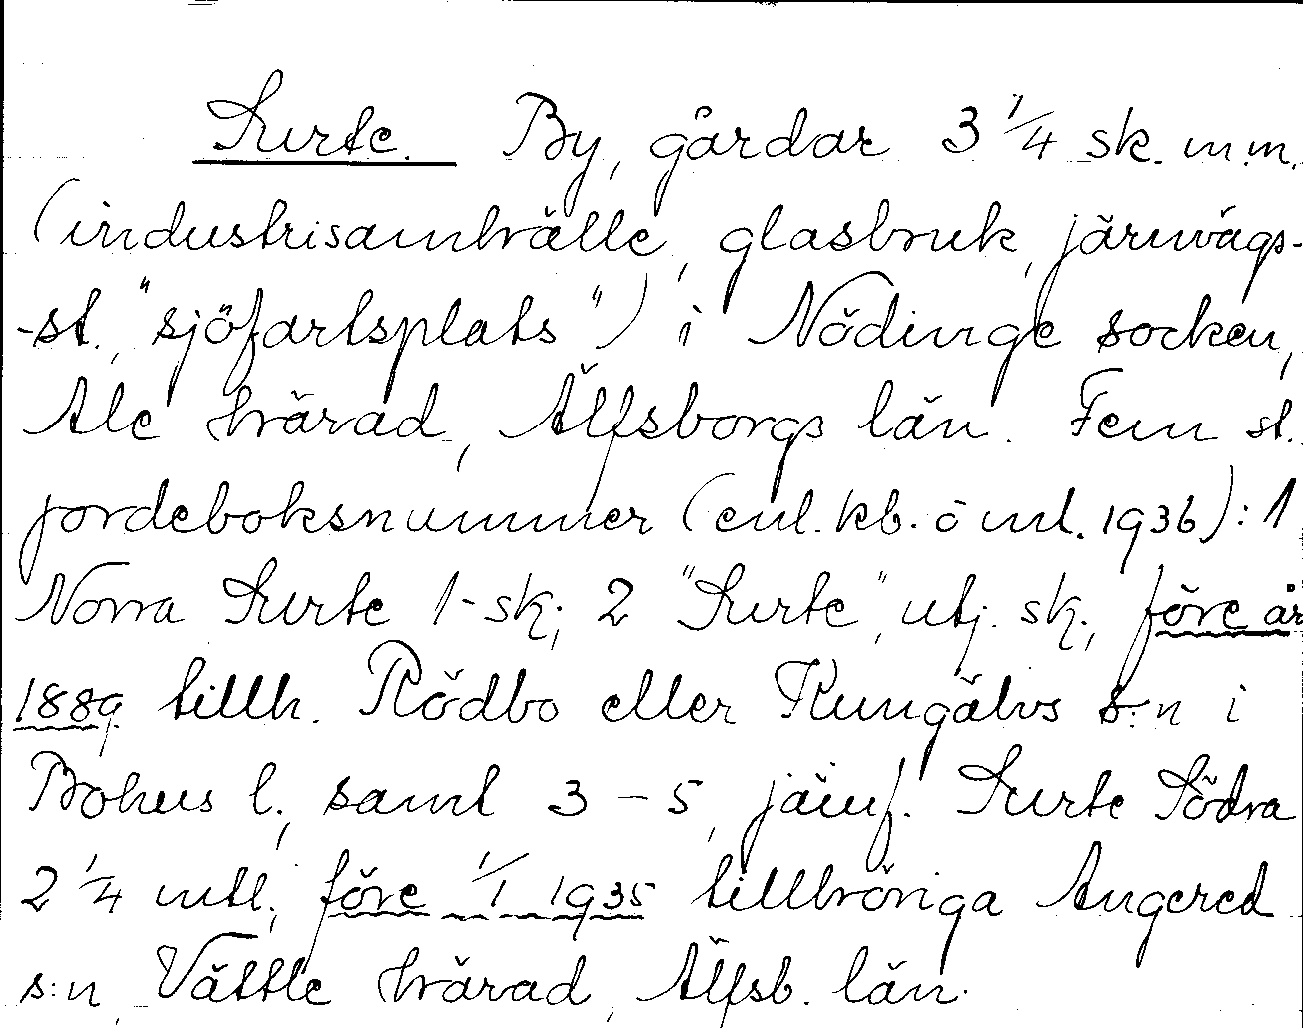 Surte. By, gårdar 3 1/4 sk. m.m.
(industrisamhälle, glasbruk, järnvägs-
-st., "sjöfartsplats") i Nödinge socken,
Ale härad, Älfsborgs län. Fem st.
jordeboksnummer (enl. kb. ö ml. 1936): 1
Norra Surte 1-sk; 2 "Surte", utj. sk., före år
1889 tillh. Rödbo eller Kungälvs s:n i
Bohus l.; samt 3 – 5, jämf. Surte Södra
2 1/4 mtl.; före 1/1 1935 tillhöriga Angered
s:n, Vättle härad, Älfsb. län.